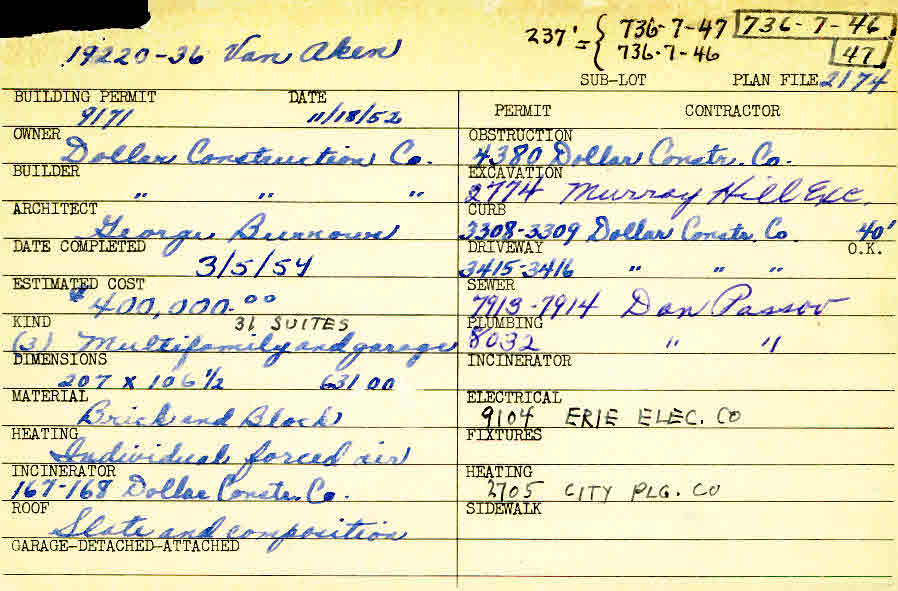 19220-36 Van Aken
237' = { 736-7-47 736-7-46
736-7-46 47
SUB-LOT PLAN FILE 2174
BUILDING PERMIT DATE
9171 11/18/52
OWNER
Dollar Construction Co.
BUILDER
" " "
ARCHITECT
George Burrows
DATE COMPLETED
3/5/54
ESTIMATED COST
$400,000.00
KIND 31 SUITES
(3) Multifamily and garage
DIMENSIONS
207 x 106 1/2 63100
MATERIAL
Brick and Block
HEATING
Individual forced air
INCINERATOR
167-168 Dollar Constr. Co.
ROOF
Slate and composition
GARAGE-DETACHED-ATTACHED
PERMIT CONTRACTOR
OBSTRUCTION
4380 Dollar Constr. Co.
EXCAVATION
2774 Murray Hill Exc.
CURB
3308-3309 Dollar Constr. Co. 40'
DRIVEWAY O.K.
3415-3416 " " "
SEWER
7913-7914 Dan Passov
PLUMBING
8032 " "
INCINERATOR
ELECTRICAL
9104 ERIE ELEC. CO
FIXTURES
HEATING
2705 CITY PLG. CO
SIDEWALK